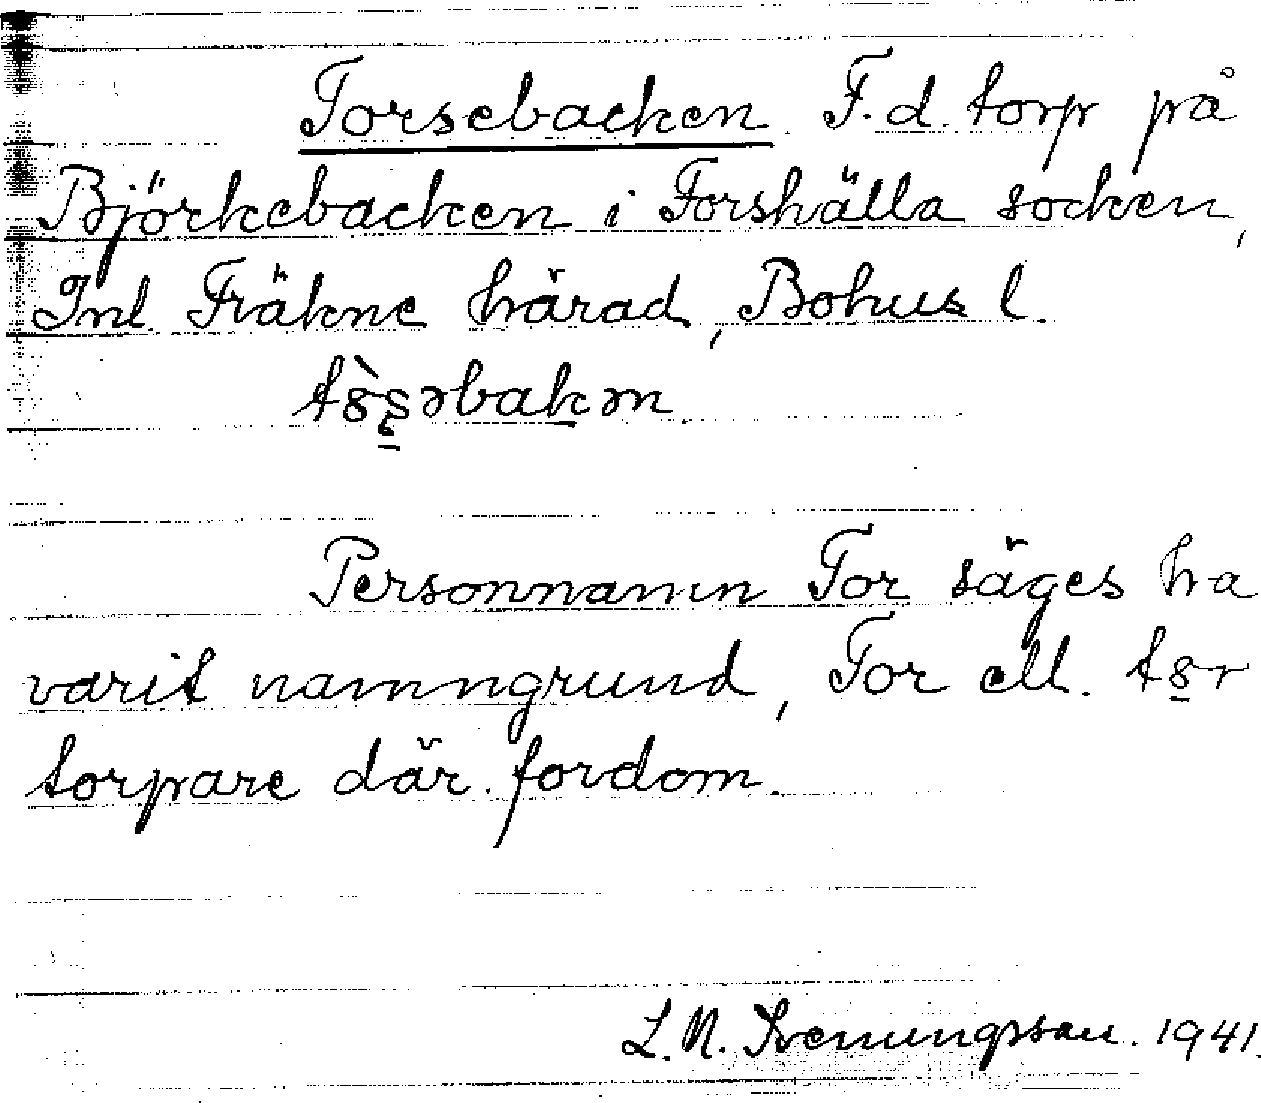 Torsebacken F.d. torp på
Björkebacken i Forshälla socken,
Inl Fräkne härad, Bohus l.
Personnamn Tor säges ha
varit namngrund, Tor ell.
torpare där fordom.
L. N. Svenungsson. 1941.